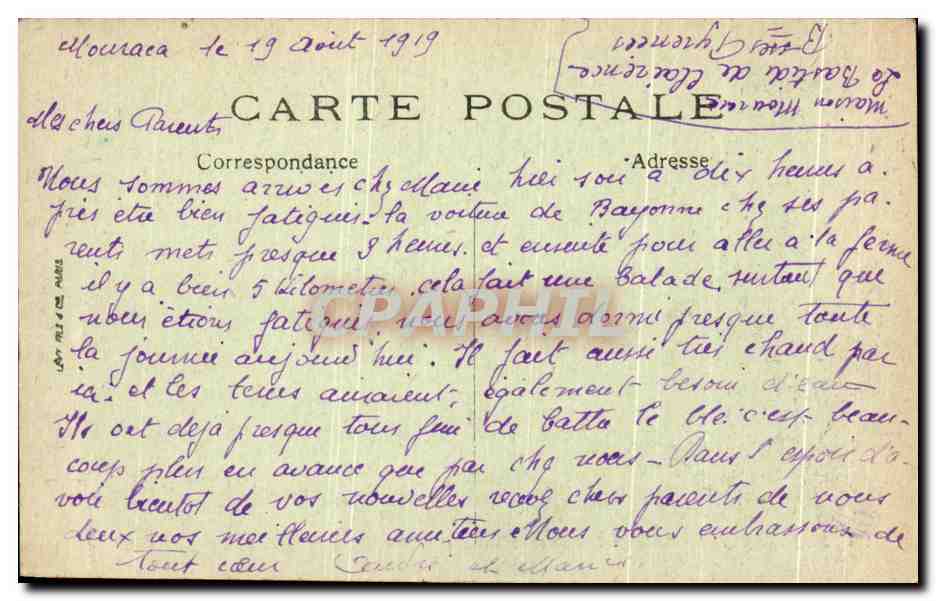 Mouraca le 19 Août 1919
Maison Mouraca
La Bastide de Clairence
Bses Pyrenees
CARTE POSTALE
Mes chers Parents
Correspondance
Adresse
Nous sommes arrives chez Marie hier soir à dix heures a-
près être bien fatigués. la voiture de Bayonne chez ses pa-
rents mets presque 3 heures. et ensuite pour aller à la ferme
il y a bien 5 kilometres, cela fait une Balade, surtout que
nous étions fatigué. nous avons dormi presque toute
la journée aujourd'hui. Il fait aussi très chaud par
ici. et les terres auraient également besoin d'eau
Ils ont deja presque tous fini de battre le blé. c'est beau-
coup plus en avance que par chez nous - Dans l'espoir d'a-
voir bientot de vos nouvelles recevez chers parents de nous
deux nos meilleures amitiés Nous vous embrassons de
tout cœur et Marie.
LEVY FILS & Cie PARIS
CPAPHIL